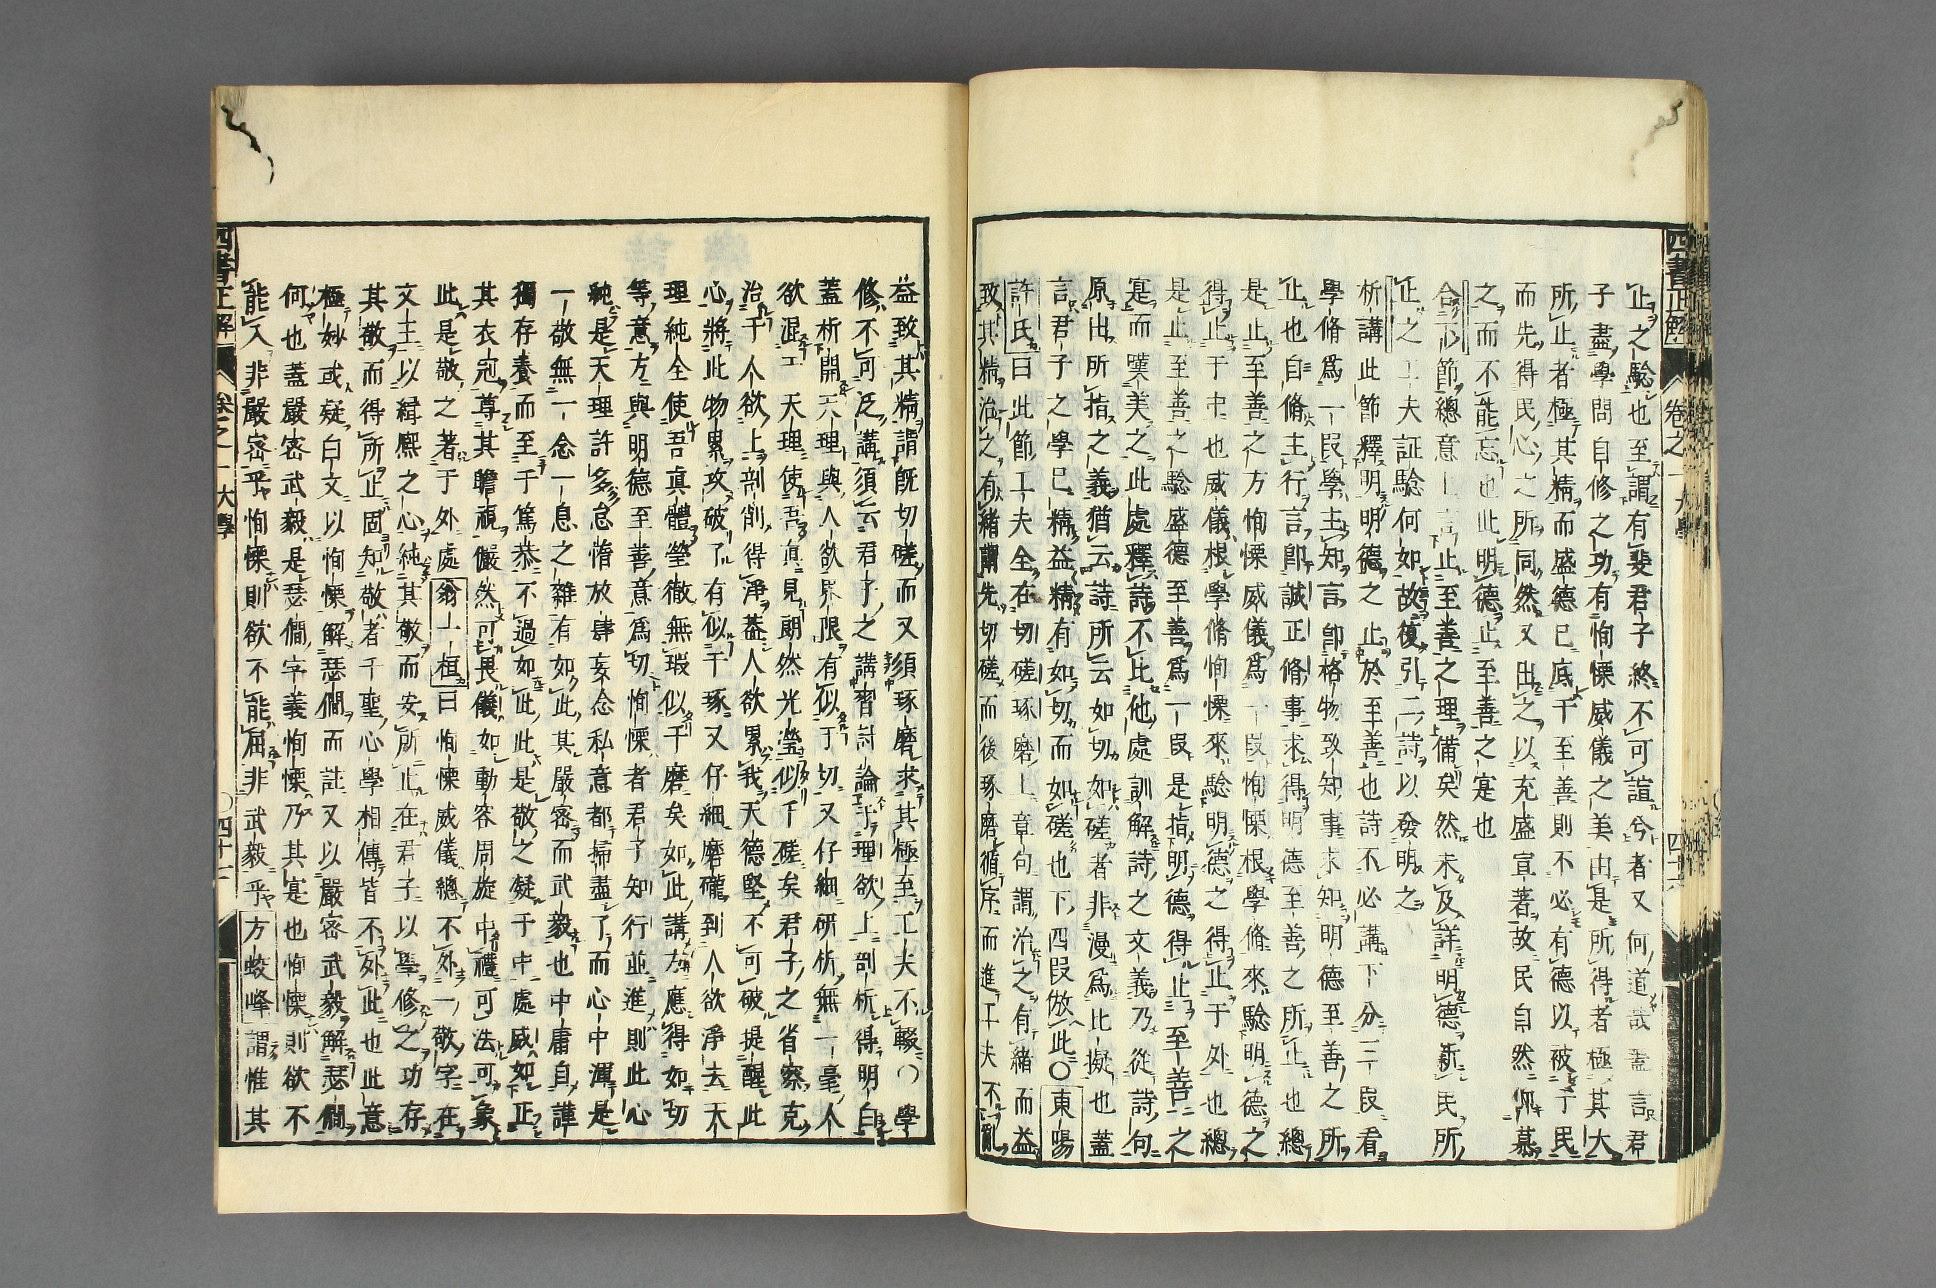 四書正解 卷之一 大學 四十六
止之驗也至謂有斐君子終不可諠兮者又何道哉蓋言君
子盡學問自修之功有恂慄威儀之美由是所得者極其大
所止者極其精而盛德已底于至善則不必有德以被于民
而先得民心之所同然又出之以充盛宣著故民自然仰慕
之而不能忘也此明德止至善之寔也
合下節總意 止至善之理備矣然未及詳明德新民所
止之工夫証驗何如故復引二詩以發明之
析講此節釋明明德之止於至善也詩不必講下分三段看
學脩爲一段學主知言卽格物致知事求知明德至善之所
止也自脩主行言卽誠正脩事求得明德至善之所止也總
是止至善之方恂慄威儀爲一段恂慄根學脩來驗明德之
得止于中也威儀根學脩恂慄來驗明德之得止于外也總
是止至善之驗盛德至善爲一段是指明德得止至善之
寔而嘆美之此處釋詩不比他處訓解詩之文義乃從詩句
原出所指之義猶云詩所云如切如磋者非漫爲比擬也蓋
言君子之學已精益精有如切而如磋也下四段倣此〇東陽
許氏曰此節工夫全在切磋琢磨上章句謂治之有緒而益
致其精治之有緒謂先切磋而後琢磨循序而進工夫不亂
益致其精謂旣切磋而又須琢磨求其極至工夫不輟〇學
修不可泛講須云君子之講習討論于理欲上剖析得明自
蓋析開天理與人欲界限有似于切又仔細研析無一毫人
欲混工天理使吾眞見朗然光瀅似于磋矣君子之省察克
治于人欲上剖削得淨蓋人欲累我天德堅不可破提醒此
心將此物累攻破了有似于琢又仔細磨礲到人欲淨去天
理純全使吾眞體瑩徹無瑕似于磨矣如此講方應得如切
等意方與明德至善意爲切恂慄者君子知行並進則此心
純是天理許多怠惰放肆妄念私意都掃盡了而心中渾是
一敬無一念一息之雜有如此其嚴密而武毅也中庸自謹
獨存養而至于篤恭不過如此此是敬之凝于中處威如正
其衣冠尊其瞻視儼然可畏儀如動容周旋中禮可法可象
此是敬之著于外處翁上桓曰恂慄威儀總不外一敬字在
文王以緝熙之心純其敬而安所止在君子以學修之功存
其敬而得所止固知敬者千聖心學相傳皆不外此也此意
極妙或疑曰文以恂慄解瑟僩而註又以嚴密武毅解瑟僩
何也蓋嚴密武毅是瑟僩字義恂慄乃其寔也恂慄則欲不
能入非嚴密乎恂慄則欲不能屈非武毅乎方蛟峰謂惟其
四書正解 卷之一 大學 〇四十一